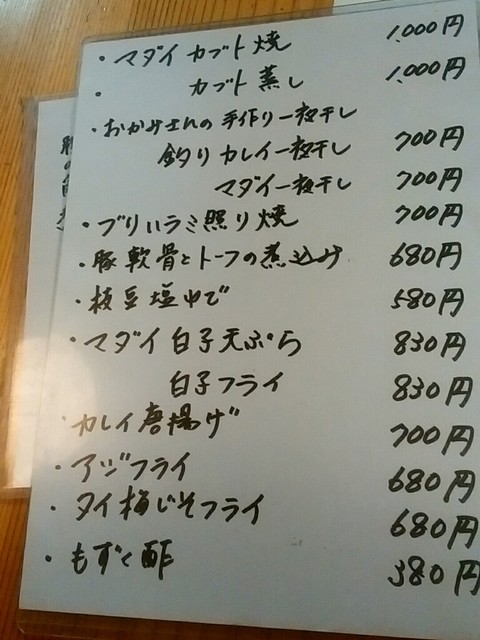 ・マダイ カブト焼 1,000円
・ カブト蒸し 1,000円
・おかみさんの手作り一夜干し
釣りカレイ一夜干し 700円
マダイ一夜干し 700円
・ブリハラミ照り焼 700円
・豚軟骨とトーフの煮込み 680円
・枝豆塩ゆで 580円
・マダイ白子天ぷら 830円
白子フライ 830円
・カレイ唐揚げ 700円
・アジフライ 680円
・タイ梅じそフライ 680円
・もずく酢 380円